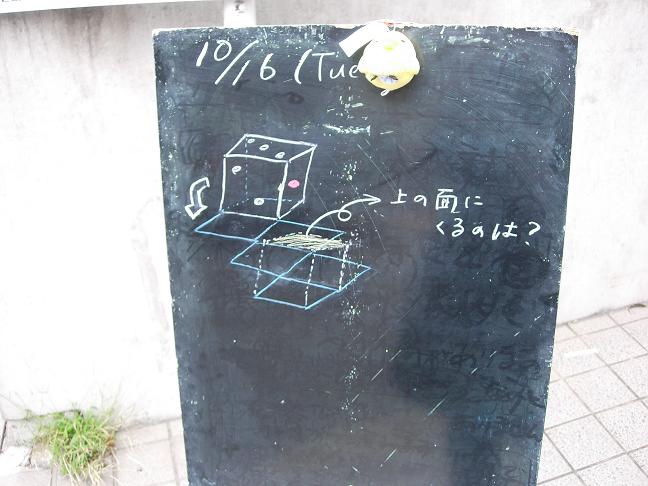 10/16 (Tue
上の面に
くるのは?